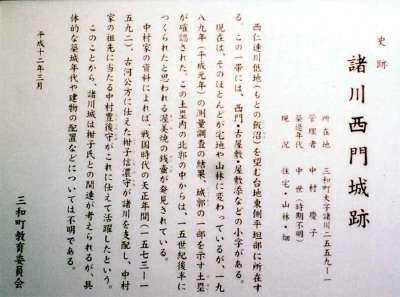 史跡
諸川西門城跡
所在地 三和町大字諸川二五五九ー一
管理者 中村慶子
築造年代 中世(時期不明)
現況 住宅・山林・畑
西仁連川低地(もとの飯沼)を望む台地東側平坦部に所在する。この一帯には、西門・古屋敷・屋敷添などの小字がある。
現在は、そのほとんどが宅地や山林に変わっているが、一九
八九年(平成元年)の測量調査の結果、城郭の一部を示す土塁
が確認された。この土塁内の北郭の中からは、一五世紀後半に
つくられたと思われる渥美焼の残壷が発見されている。
中村家の資料によれば、戦国時代の天正年間(一五七三ー一
五九二)、古河公方に仕えた柑子信濃守が諸川を支配し、中村
家の祖先に当たる中村豊後守がこれに仕えて活躍したという。
このことから、諸川城は柑子氏との関連が考えられるが、具
体的な築城年代や建物の配置などについては不明である。
平成十二年三月
三和町教育委員会